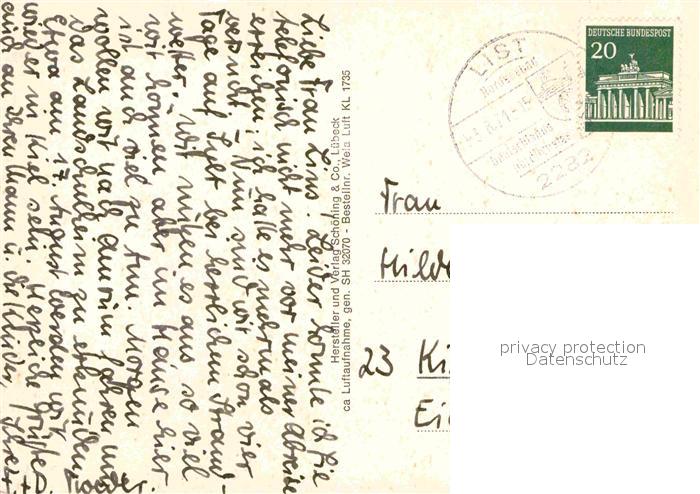 Liebe Frau Lins, leider konnte ich Sie
telefonisch nicht mehr vor meiner Abreise
erreichen; ich hatte es mehrmals
versucht. Nun sind wir schon vier
Tage auf Sylt bei herrlichem Strand-
wetter. Wir nützen es aus, so viel
wir können, aber im Hause hier
ist auch viel zu tun. Morgen
wollen wir nach Amrum fahren um
das Landschulheim zu erkunden.
Etwa am 17. August werden wir
wieder in Kiel sein. Herzliche Grüße
auch an Ihren Mann u. die Kinder,
Ihre
Hersteller und Verlag Schöning & Co., Lübeck
ca Luftaufnahme, gen. SH 32070 - Bestellnr. Wela Luft KL 1735
LIST
Nordseebad
2282
DEUTSCHE BUNDESPOST
20
Frau
Hilde
23 Ki
Ei
privacy protection
Datenschutz